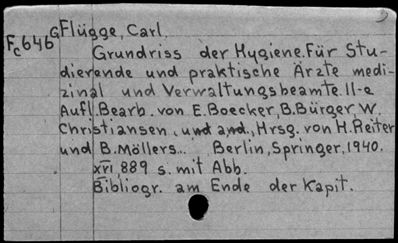 G Flügge, Carl.
Fc646
Grundriss der Hygiene. Für Stu-
dierende und praktische Ärzte medi-
zinal und Verwaltungsbeamte. II-e
Aufl. Bearb. von E. Boecker, B. Bürger W.
Christiansen, und and., Hrsg. von H. Reiter
und B. Möllers... Berlin, Springer, 1940.
XVI, 889 s. mit Abb.
Bibliogr. am Ende der Kapit.